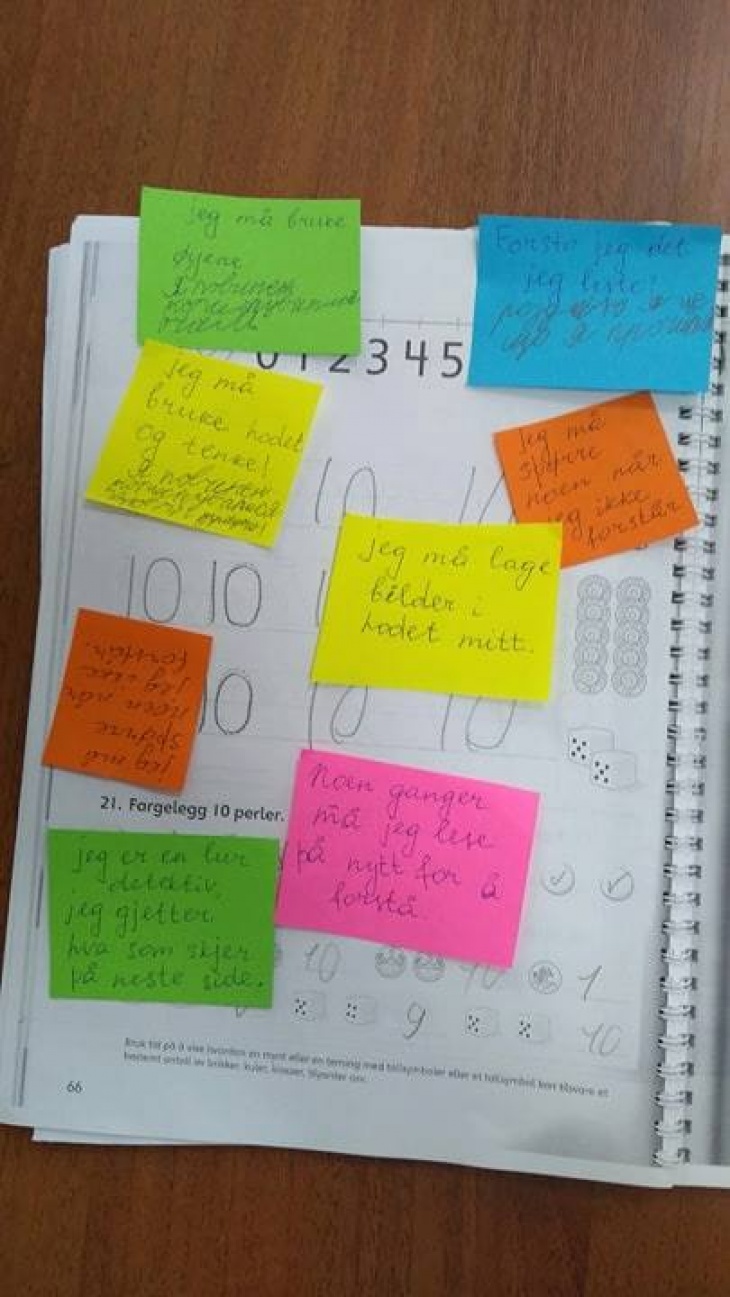 jeg må bruke
øyene
Forsto jeg det
jeg leste?
що я прочитав
0 1 2 3 4 5
jeg må
bruke hodet
og tenke!
Я повинен
jeg må
spørre
noen når
jeg ikke
forstår
10 10
10 10
jeg må lage
bilder i
hodet mitt.
jeg må
spørre
noen når
jeg ikke
forstår.
10 10 10
21. Fargelegg 10 perler.
Noen ganger
må jeg lese
på nytt for å
forstå
jeg er en lur
detektiv,
jeg gjetter
hva som skjer
på neste side.
10 10 1
9 10
Bruk tid på å vise hvordan en mynt eller en terning med tallsymboler eller et tallsymbol kan tilsvare et
bestemt antall av brikker, kuler, knapper, blyanter osv.
66